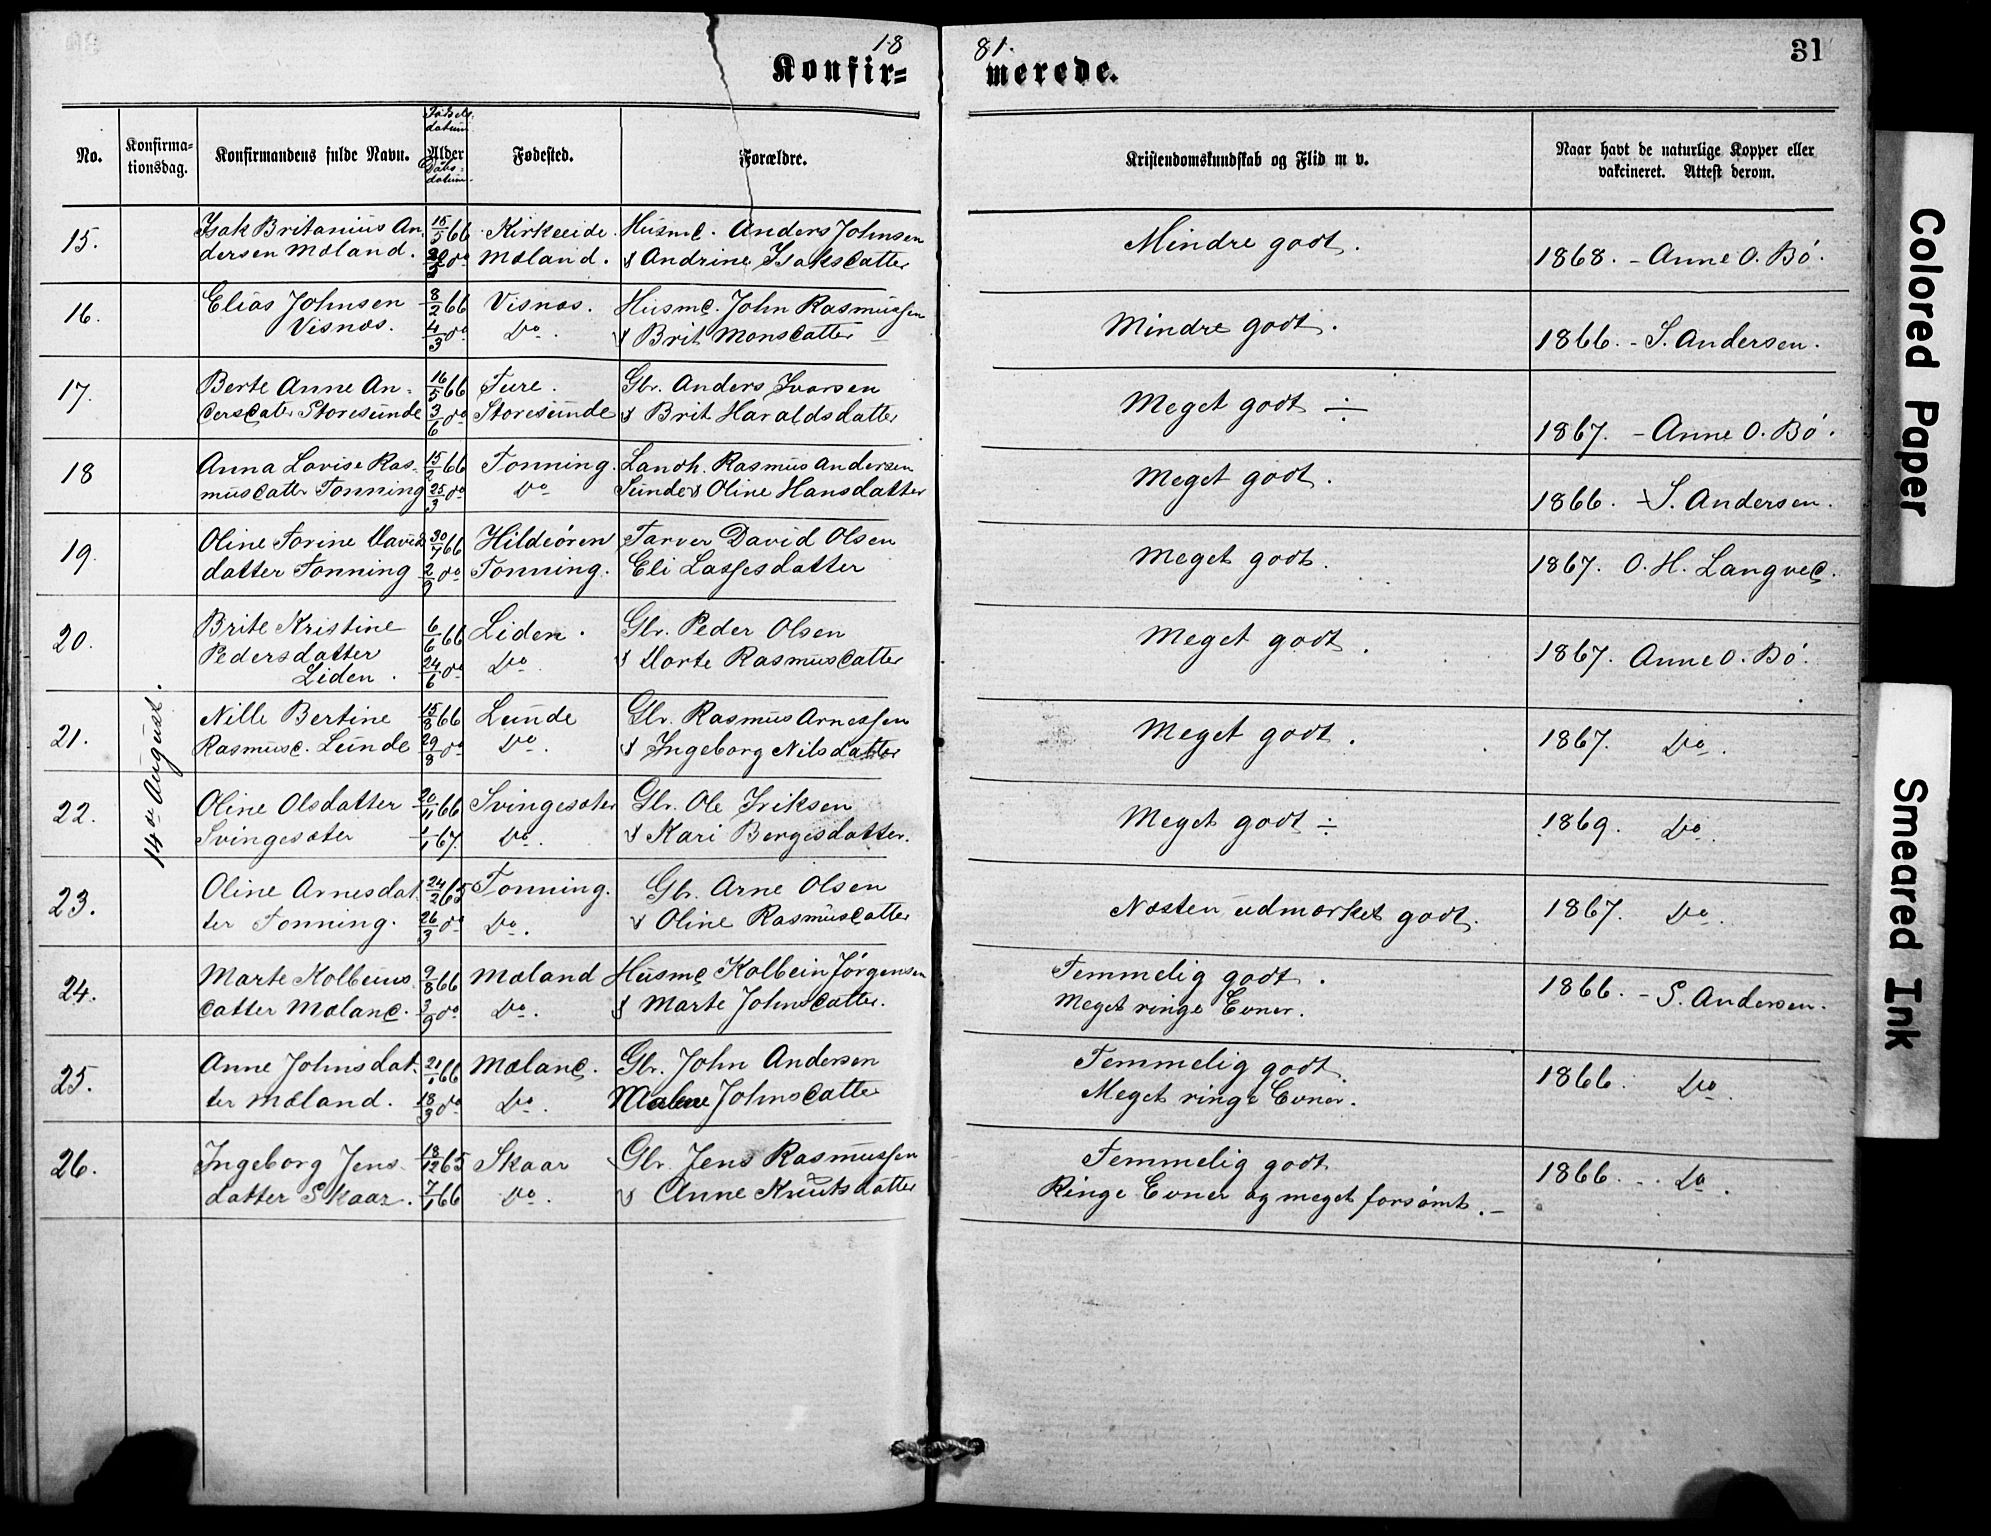 18 81.
Konfir= merede.
31
No.
Konfirma-
tionsdag.
Konfirmandens fulde Navn.
Fødsels-
datum.
Alder
Daabs-
datum.
Fødested.
Forældre.
Kristendomskundskab og Flid m v.
Naar havt de naturlige Kopper eller
vakcineret. Attest derom.
14de August.
15. Isak Britanius An- 15/5 66 Kirkeeide. Husmd. Anders Johnsen Mindre godt.
dersen Mæland. do Mæland. & Andrine Isaksdatter 1868. - Anne O. Bö.
16. Elias Johnsen 8/2 66 Visnæs. Husmd. John Rasmussen Mindre godt.
Visnæs. 4/3 do Do. & Brit Monsdatter 1866. - S. Andersen.
17. Berte Anne An- 16/5 66 Ture. Gbr. Anders Ivarsen Meget godt ÷
dersdater Storesunde 3/6 do Storesunde & Brit Haraldsdatter 1867. - Anne O. Bö.
18 Anna Lovise Ras- 15/2 66 Tonning. Landh. Rasmus Andersen Meget godt.
musdatter Tonning 25/3 do Do Sunde & Oline Hansdatter 1866. - S. Andersen.
19. Oline Torine David 30/7 66 Hildeören Farver David Olsen Meget godt.
datter Tonning 2/9 do Tonning. Eli Lassesdatter 1867. O. H. Langved.
20. Brite Kristine 6/6 66 Liden. Gbr. Peder Olsen Meget godt.
Pedersdatter 24/6 do Do. & Marte Rasmusdatter 1867. Anne O. Bö.
Liden.
21. Nille Bertine 15/8 66 Lunde Gbr. Rasmus Arnessen Meget godt.
Rasmusd. Lunde 29/8 do Do. & Ingeborg Nilsdatter 1867. Do.
22. Oline Olsdatter 20/11 66 Svingesæter Gbr. Ole Iriksen Meget godt ÷
Svingesæter 1/1 67. Do. & Kari Bergesdatter. 1869. Do.
23. Oline Arnesdat- 24/2 65 Tonning. Gbr. Arne Olsen Næsten udmærket godt.
ter Tonning. 26/3 do Do. & Oline Rasmusdatter 1867. Do.
24. Marte Kolbeins- 9/8 66 Mæland Husmd Kolbein Jörgensen Temmelig godt.
datter Mæland. 3/9 do Do. & Marte Johnsdatter. Meget ringe Evner. 1866. - S. Andersen.
25. Anne Johnsdat- 21/1 66 Mæland. Gbr. John Andersen Temmelig godt.
ter Mæland. 18/3 do Do. Malene Johnsdatter Meget ringe Evner. 1866. Do.
26. Ingeborg Jens- 18/12 65 Skaar Gbr. Jens Rasmussen Temmelig godt
datter Skaar. 7/1 66 Do. & Anne Knutsdatter Ringe Evner og meget forsömt. - 1866. - . Do.
Colored Paper
Smeared Ink